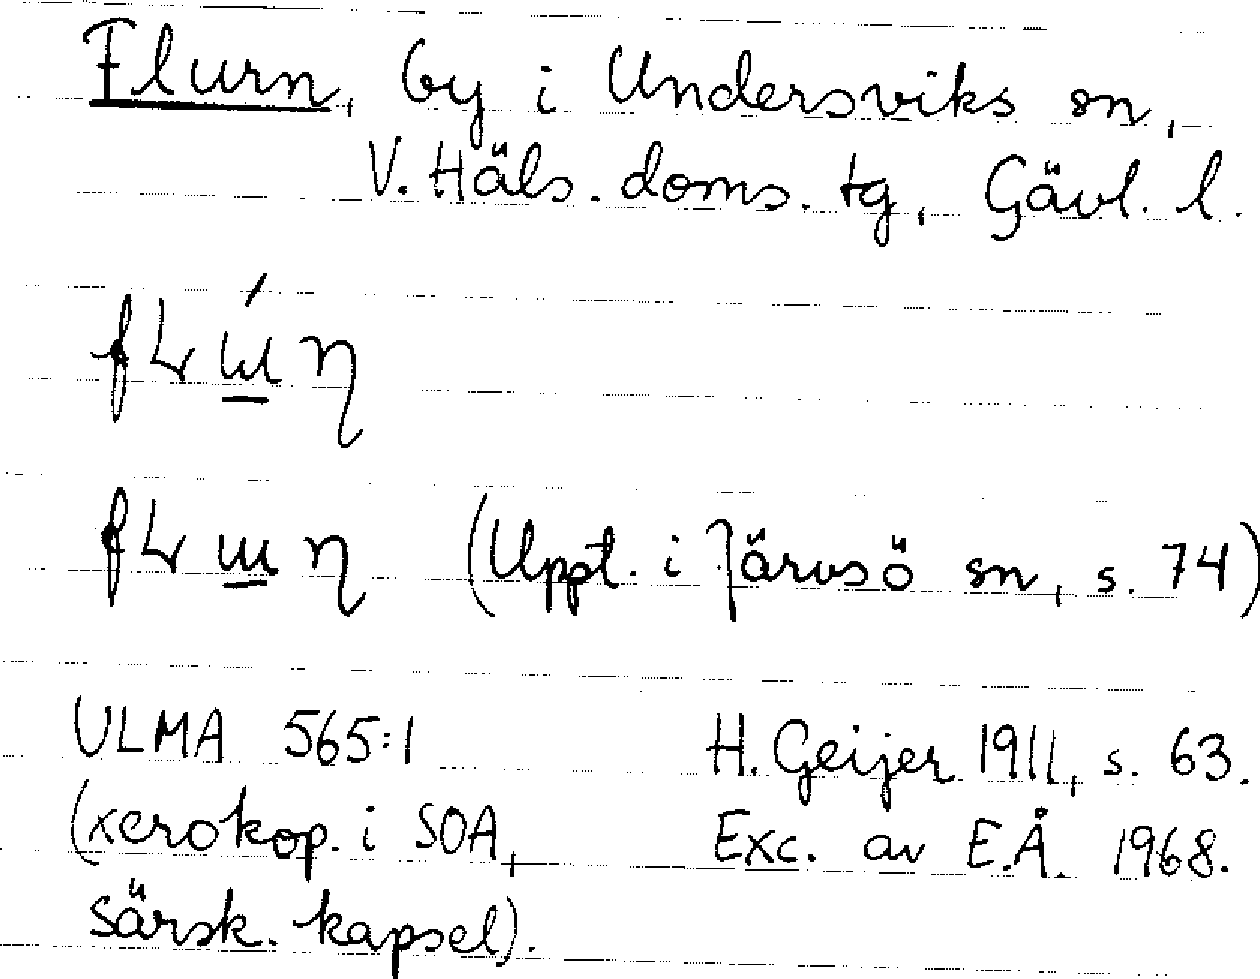 Flurn, by i Undersviks sn,
V. Häls. doms. tg, Gävl. l.
(Uppt. i Järvsö sn, s. 74)
ULMA 565:1
(xerokop. i SOA,
särsk. kapsel).
H. Geijer 1911, s. 63.
Exc. av E.Å. 1968.